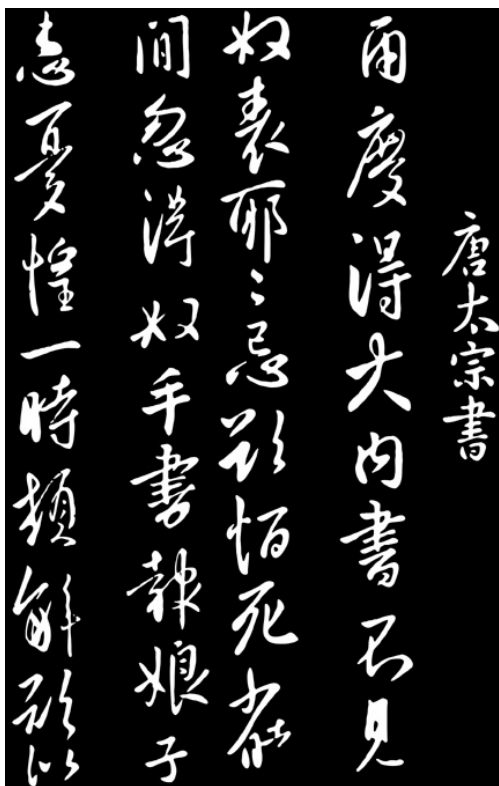 唐太宗書
兩度得大内書不見
奴表耶々忌欲恒死少時
間忽得奴手書報娘子
患憂惶一時頓解欲似